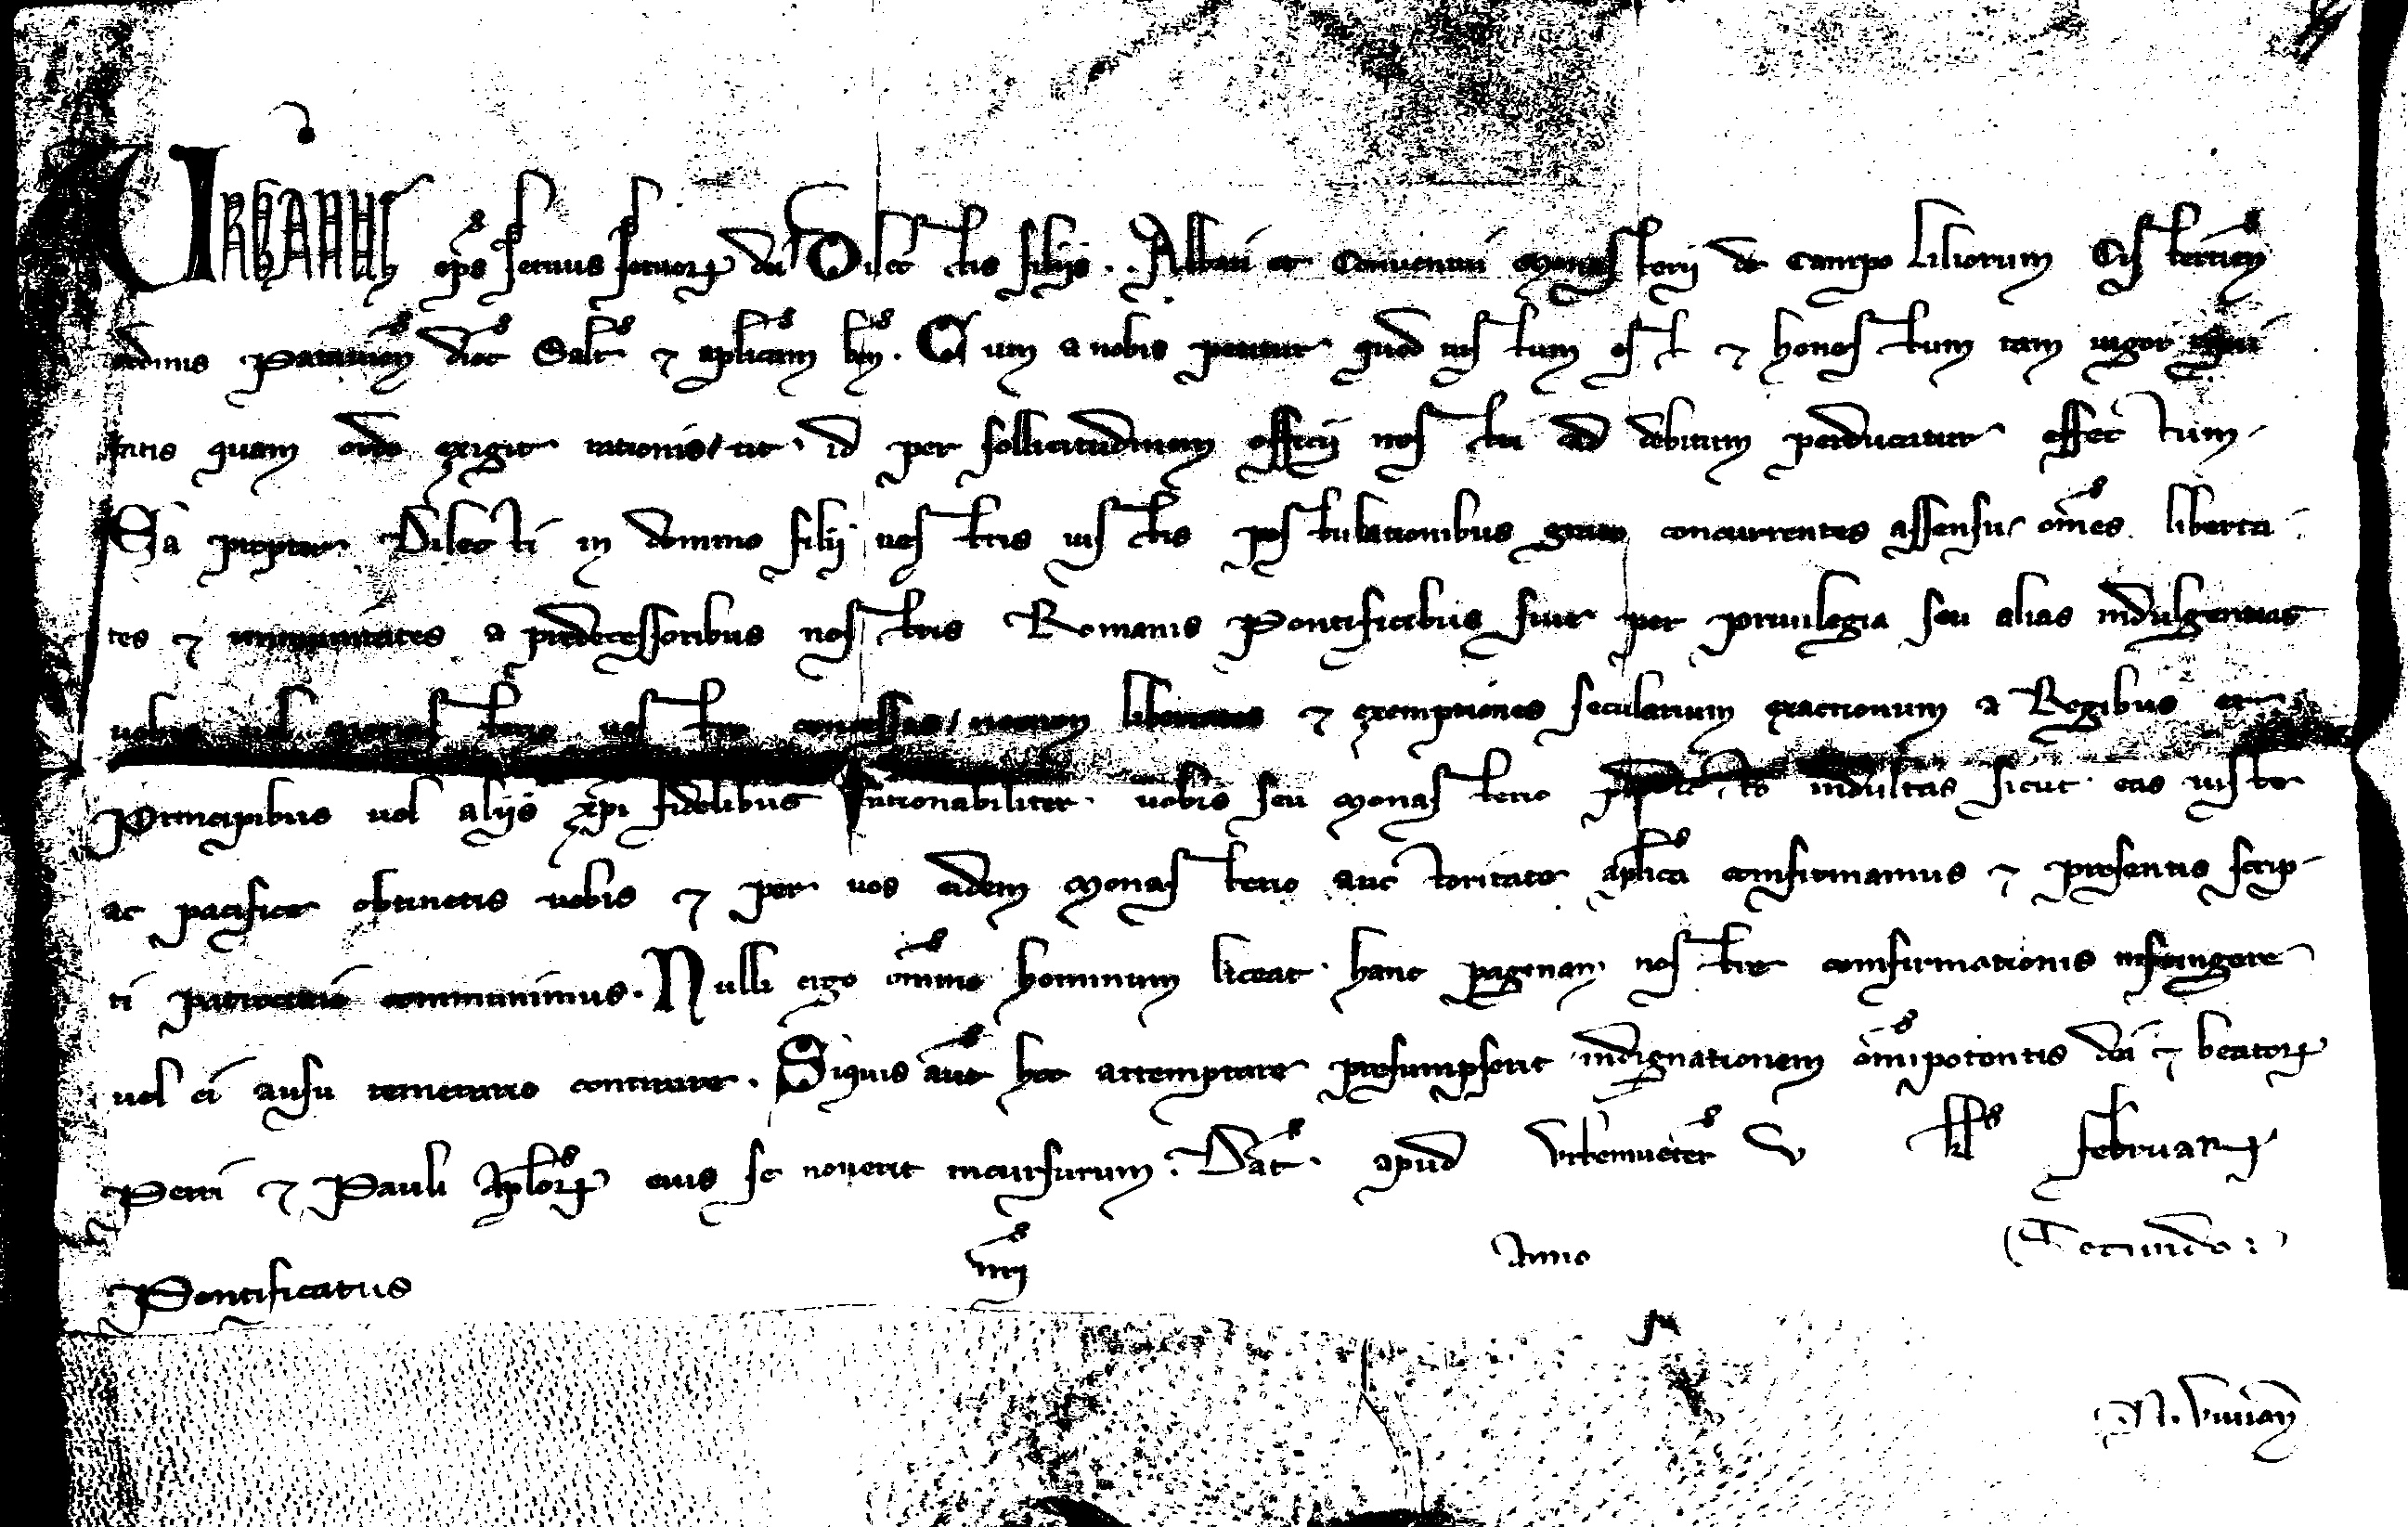 URBANUS ep̄s seruus seruoꝝ dei Dilectis filiis . . Abbati et Conuentui Monasterij de Campo Liliorum Cisterciēn
ordinis Patauieñ dioc̄ Salt̄ ⁊ aplicam beñ. Cum a nobis petitur quod iustum est ⁊ honestum tam uigor equi
tatis quam ordo exigit rationis / ut id per sollicitudinem officij nostri ad debitum perducatur effectum.
Ea propter Dilecti in domino filij uestris iustis postulationibus grato concurrentes assensu / om̄es liberta
tes ⁊ immunitates a predecessoribus nostris Romanis Pontificibus siue per priuilegia seu alias indulgentias
uobis uel Monasterio uestro concessas / necnon libertates ⁊ exemptiones secularium exactionum a Regibus et
Principibus uel aliis xp̄i fidelibus rationabiliter uobis seu Monasterio predicto indultas sicut eas iuste
ac pacifice obtinetis uobis ⁊ per uos eidem Monasterio auctoritate aplica confirmamus ⁊ presentis scrip
ti patrocinio communimus. Nulli ergo om̄ino hominum liceat hanc paginam nostre confirmationis infringere
uel ei ausu temerario contraire. Siquis aut̄ hoc attemptare presumpserit indignationem om̄ipotentis dei ⁊ beatoꝝ
Petri ⁊ Pauli Aploꝝ eius se nouerit incursurum. Dat̄ apud Vrbemueter̄ V kl̄s februarij
Pontificatus nr̄i Anno Secundo.
N. Viuiañ